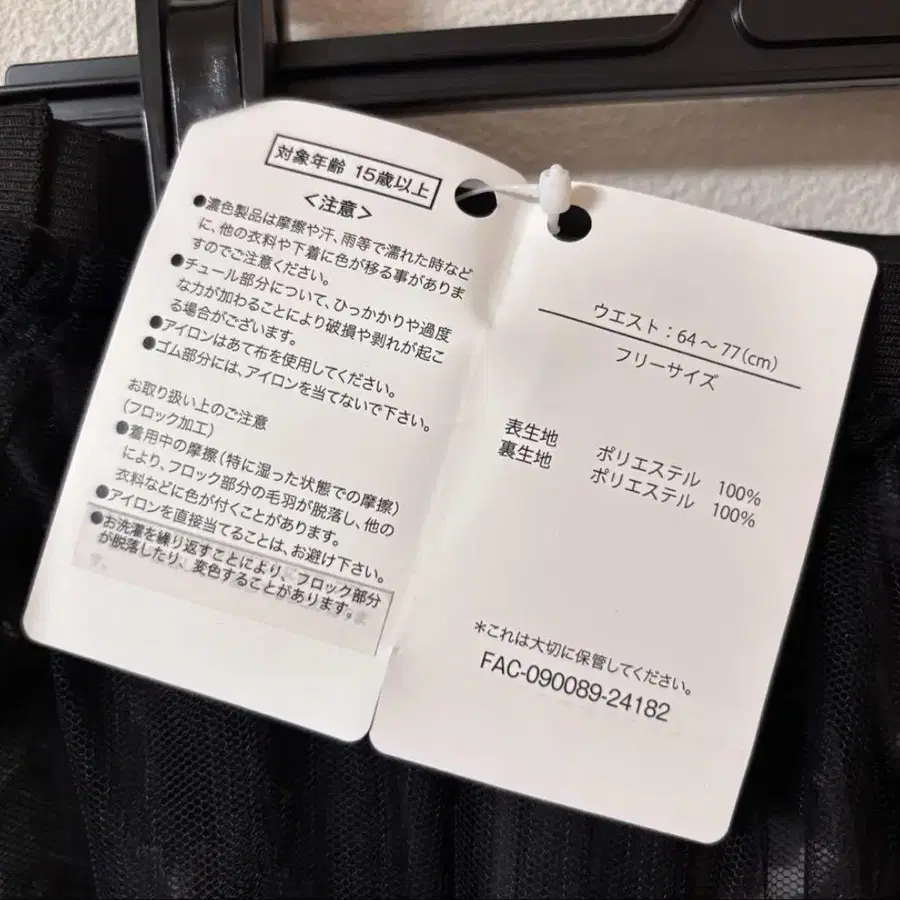 対象年齢 15歳以上
＜注意＞
●濃色製品は摩擦や汗、雨等で濡れた時など
に、他の衣料や下着に色が移る事がありま
すのでご注意ください。
●チュール部分について、ひっかかりや過度
な力が加わることにより破損や剥れが起こ
る場合がございます。
●アイロンはあて布を使用してください。
●ゴム部分には、アイロンを当てないで下さい。
お取り扱い上のご注意
(フロック加工)
●着用中の摩擦(特に湿った状態での摩擦)
により、フロック部分の毛羽が脱落し、他の
衣料などに色が付くことがあります。
●アイロンを直接当てることは、お避け下さい。
●お洗濯を繰り返すことにより、フロック部分
が脱落したり、変色することがあります。
ウエスト：64～77(cm)
フリーサイズ
表生地 ポリエステル 100%
裏生地 ポリエステル 100%
＊これは大切に保管してください。
FAC-090089-24182